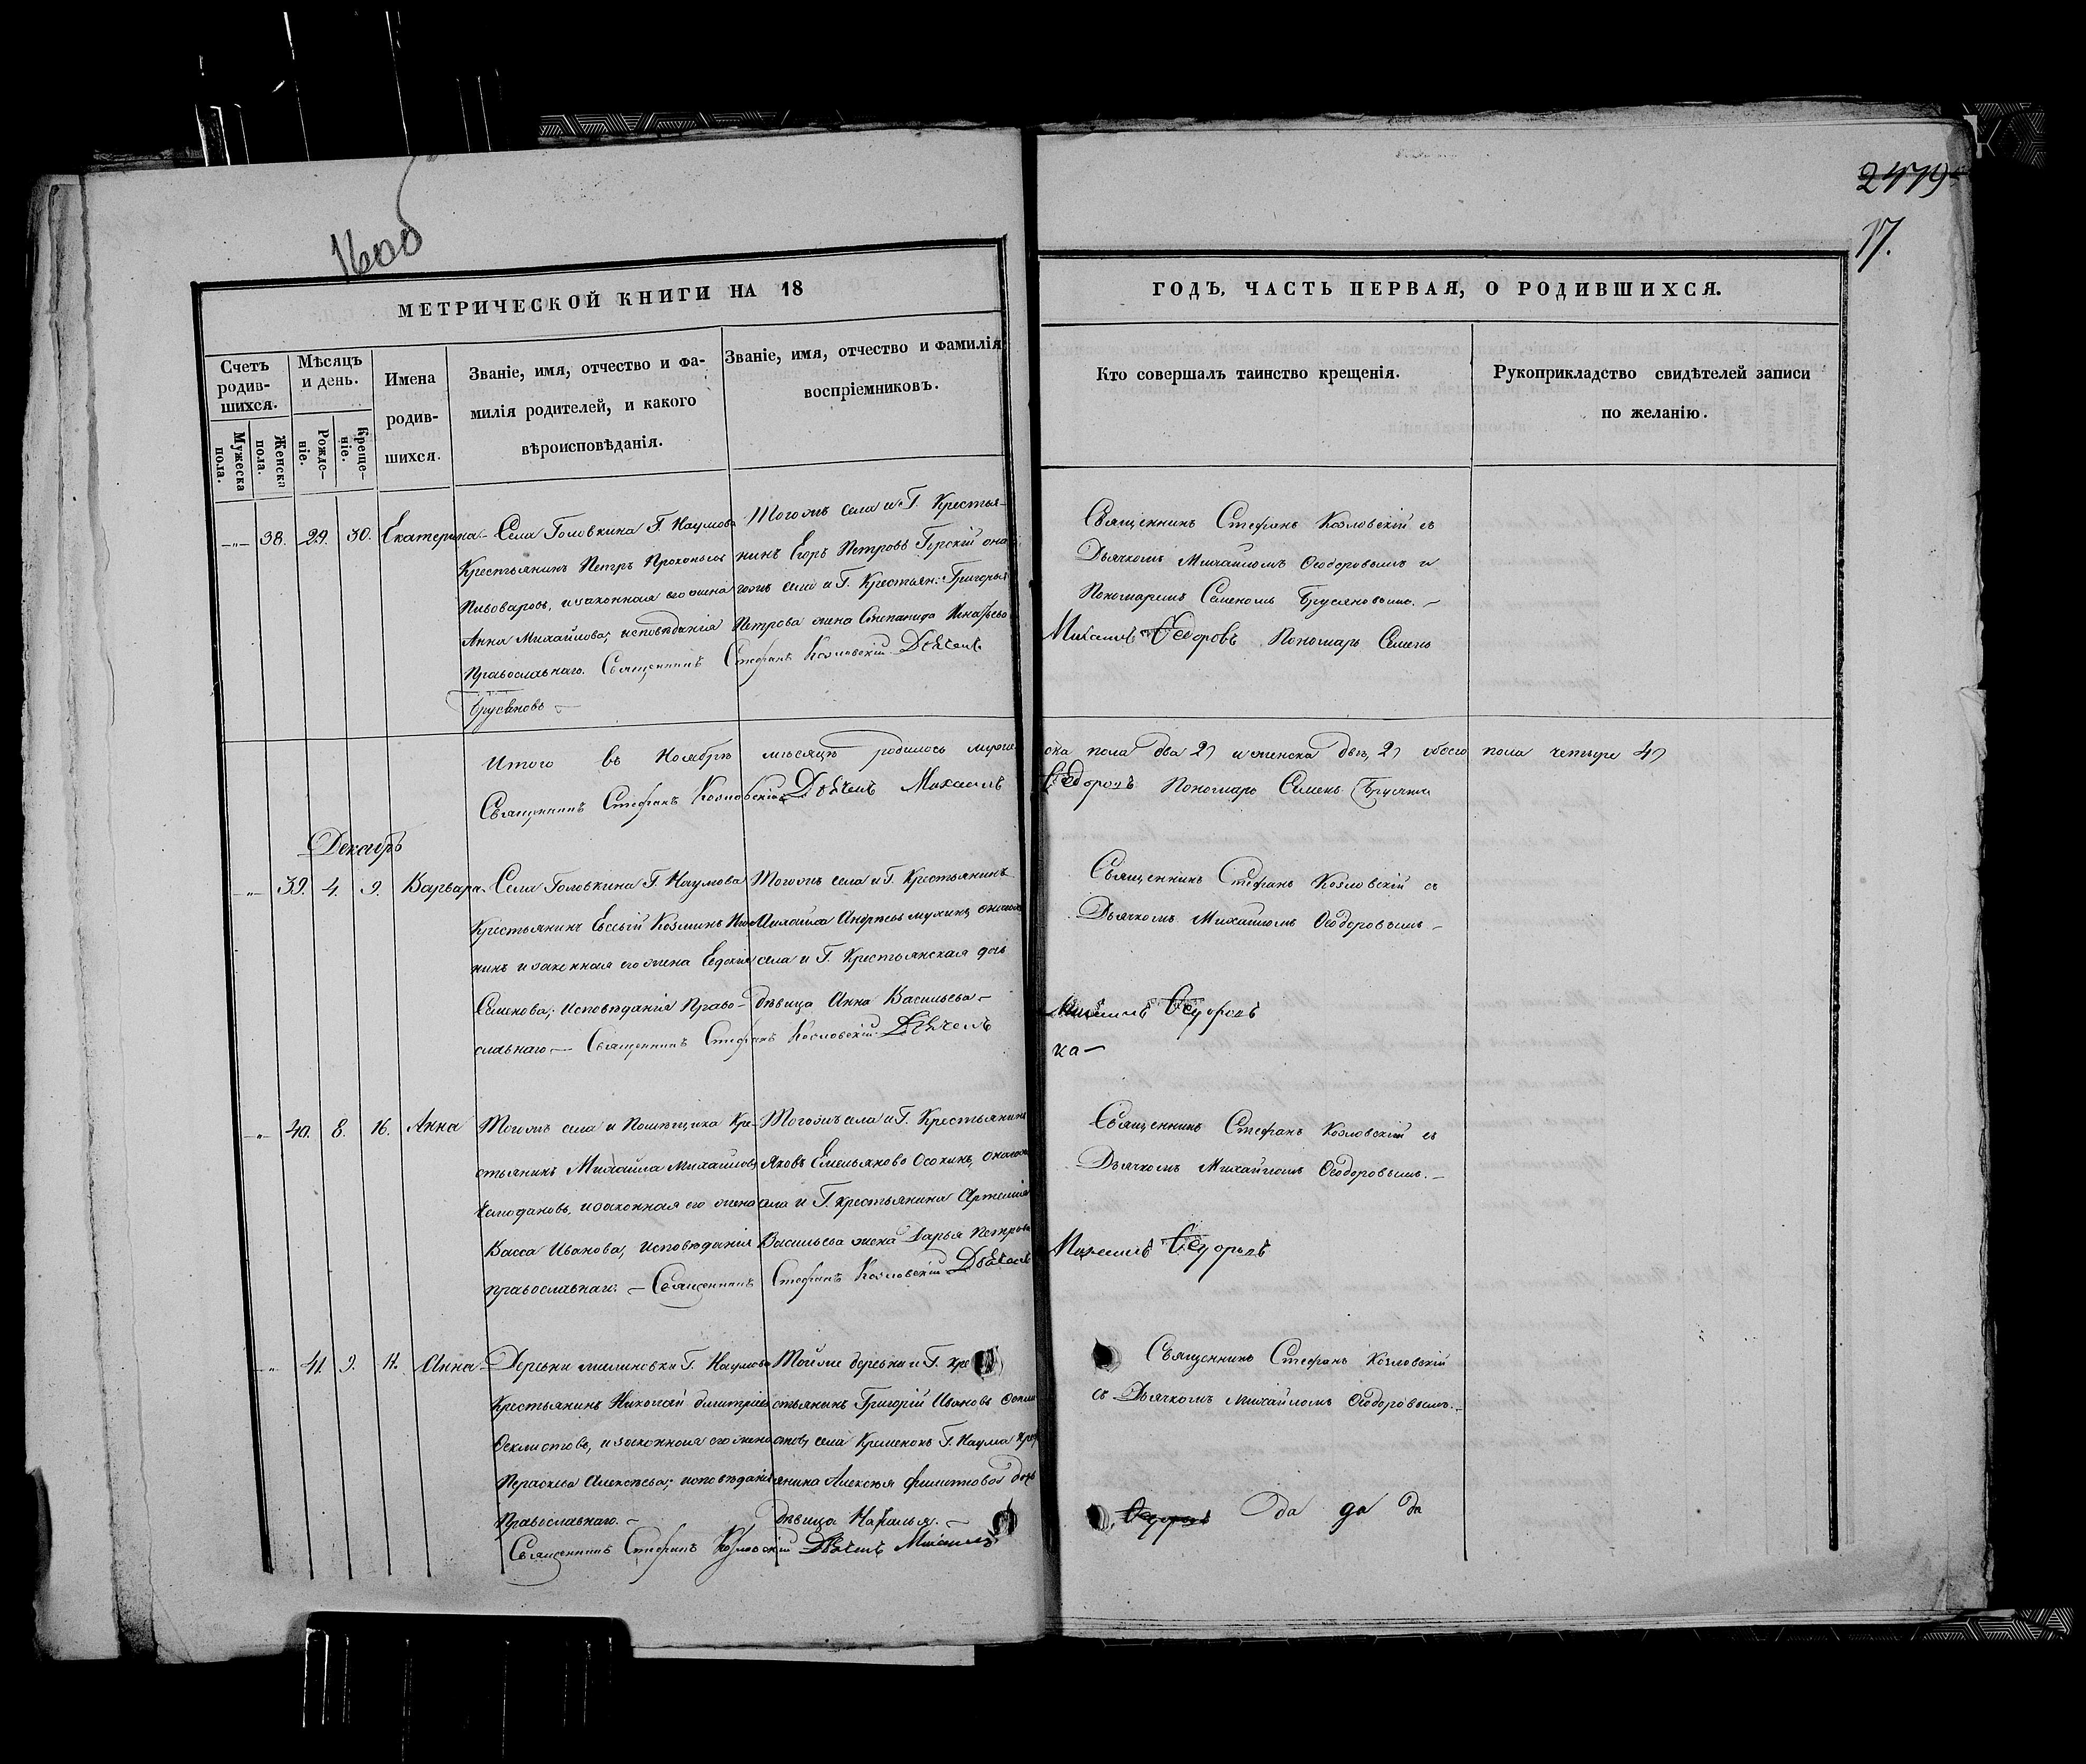 1600
2479
17.
МЕТРИЧЕСКОЙ КНИГИ НА 18
ГОДЪ, ЧАСТЬ ПЕРВАЯ, О РОДИВШИХСЯ.
Счетъ родив-шихся.
Мужеска пола.
Женска пола.
Мѣсяцъ и день.
Рожде-ніе.
Креще-ніе.
Имена родив-шихся.
Званіе, имя, отчество и фа-
милія родителей, и какого
вѣроисповѣданія.
Званіе, имя, отчество и фамилія
воспріемниковъ.
Кто совершалъ таинство крещенія.
Рукоприкладство свидѣтелей записи
по желанію.
—"— 38. 29. 30. Екатерина.
Села Головкина Г. Наумова
Крестьянинъ Петръ Прокопьевъ
Пивоваровъ, и законная его жена
Анна Михайлова; исповѣданія
Православнаго.
Тогожъ села и Г. Крестья-
нинъ Егоръ Петровъ
гожъ села и Г. Крестьян: Григорья
Петрова жена Степанида
Священникъ Стефанъ Козловскій съ
Дьячкомъ Михаиломъ Ѳеодоровымъ и
Пономаремъ Семеномъ Брусяновымъ. —
Священникъ Стефанъ Козловскій Дьячекъ
Михаилъ Ѳедоровъ Пономарь Семенъ
Брусяновъ —
Итого въ Ноябрѣ мѣсяцѣ родилось мужеска пола два 2, и женска двѣ, 2, обоего пола четыре 4,
Священникъ Стефанъ Козловскій Дьячекъ Михаилъ Ѳедоровъ Пономарь Семенъ
Декабрь
—"— 39. 4. 9. Варвара.
Села Головкина Г. Наумова
Крестьянинъ Евсѣй Козминъ
нинъ и законная его жена Евдокія
Семенова; исповѣданія Право-
славнаго —
Тогожъ села и Г. Крестьянинъ
Михайла Андреевъ
села и Г. Крестьянская дочь
дѣвица Анна Васильева —
Священникъ Стефанъ Козловскій съ
Дьячкомъ Михаиломъ Ѳеодоровымъ —
Священникъ Стефанъ Козловскій Дьячекъ
Михаилъ Ѳедоровъ
ка —
—"— 40. 8. 16. Анна
Тогожъ села и Помѣщика Кре-
стьянинъ Михайла Михайловъ
Чемодановъ, и законная его жена
Васса Иванова; исповѣданія
православнаго. —
Тогожъ села и Г. Крестьянинъ
Яковъ Емельяновъ Осокинъ,
села и Г. крестьянина Артемія
Васильева жена Дарья Петрова
Священникъ Стефанъ Козловскій съ
Дьячкомъ Михайломъ Ѳеодоровымъ. —
Священникъ Стефанъ Козловскій Дьячекъ
Михаилъ Ѳедоровъ
—"— 41. 9. 11. Анна
Деревни Г. Наумова
Крестьянинъ Николай Дмитріевъ
Ѳеклистовъ, и законная его жена
Параскева Алексѣева; исповѣданія
Православнаго. —
Тойже деревни и Г. кре
стьянинъ Григорій Ивановъ
села Кременокъ Г. Наума
янина Алексѣя Филиппова дочь
дѣвица Наталья. —
Священникъ Стефанъ Козловскій
съ Дьячкомъ Михайломъ Ѳеодоровымъ. —
Священникъ Стефанъ Козловскій Дьячекъ Михаилъ
Ѳедоровъ да да да